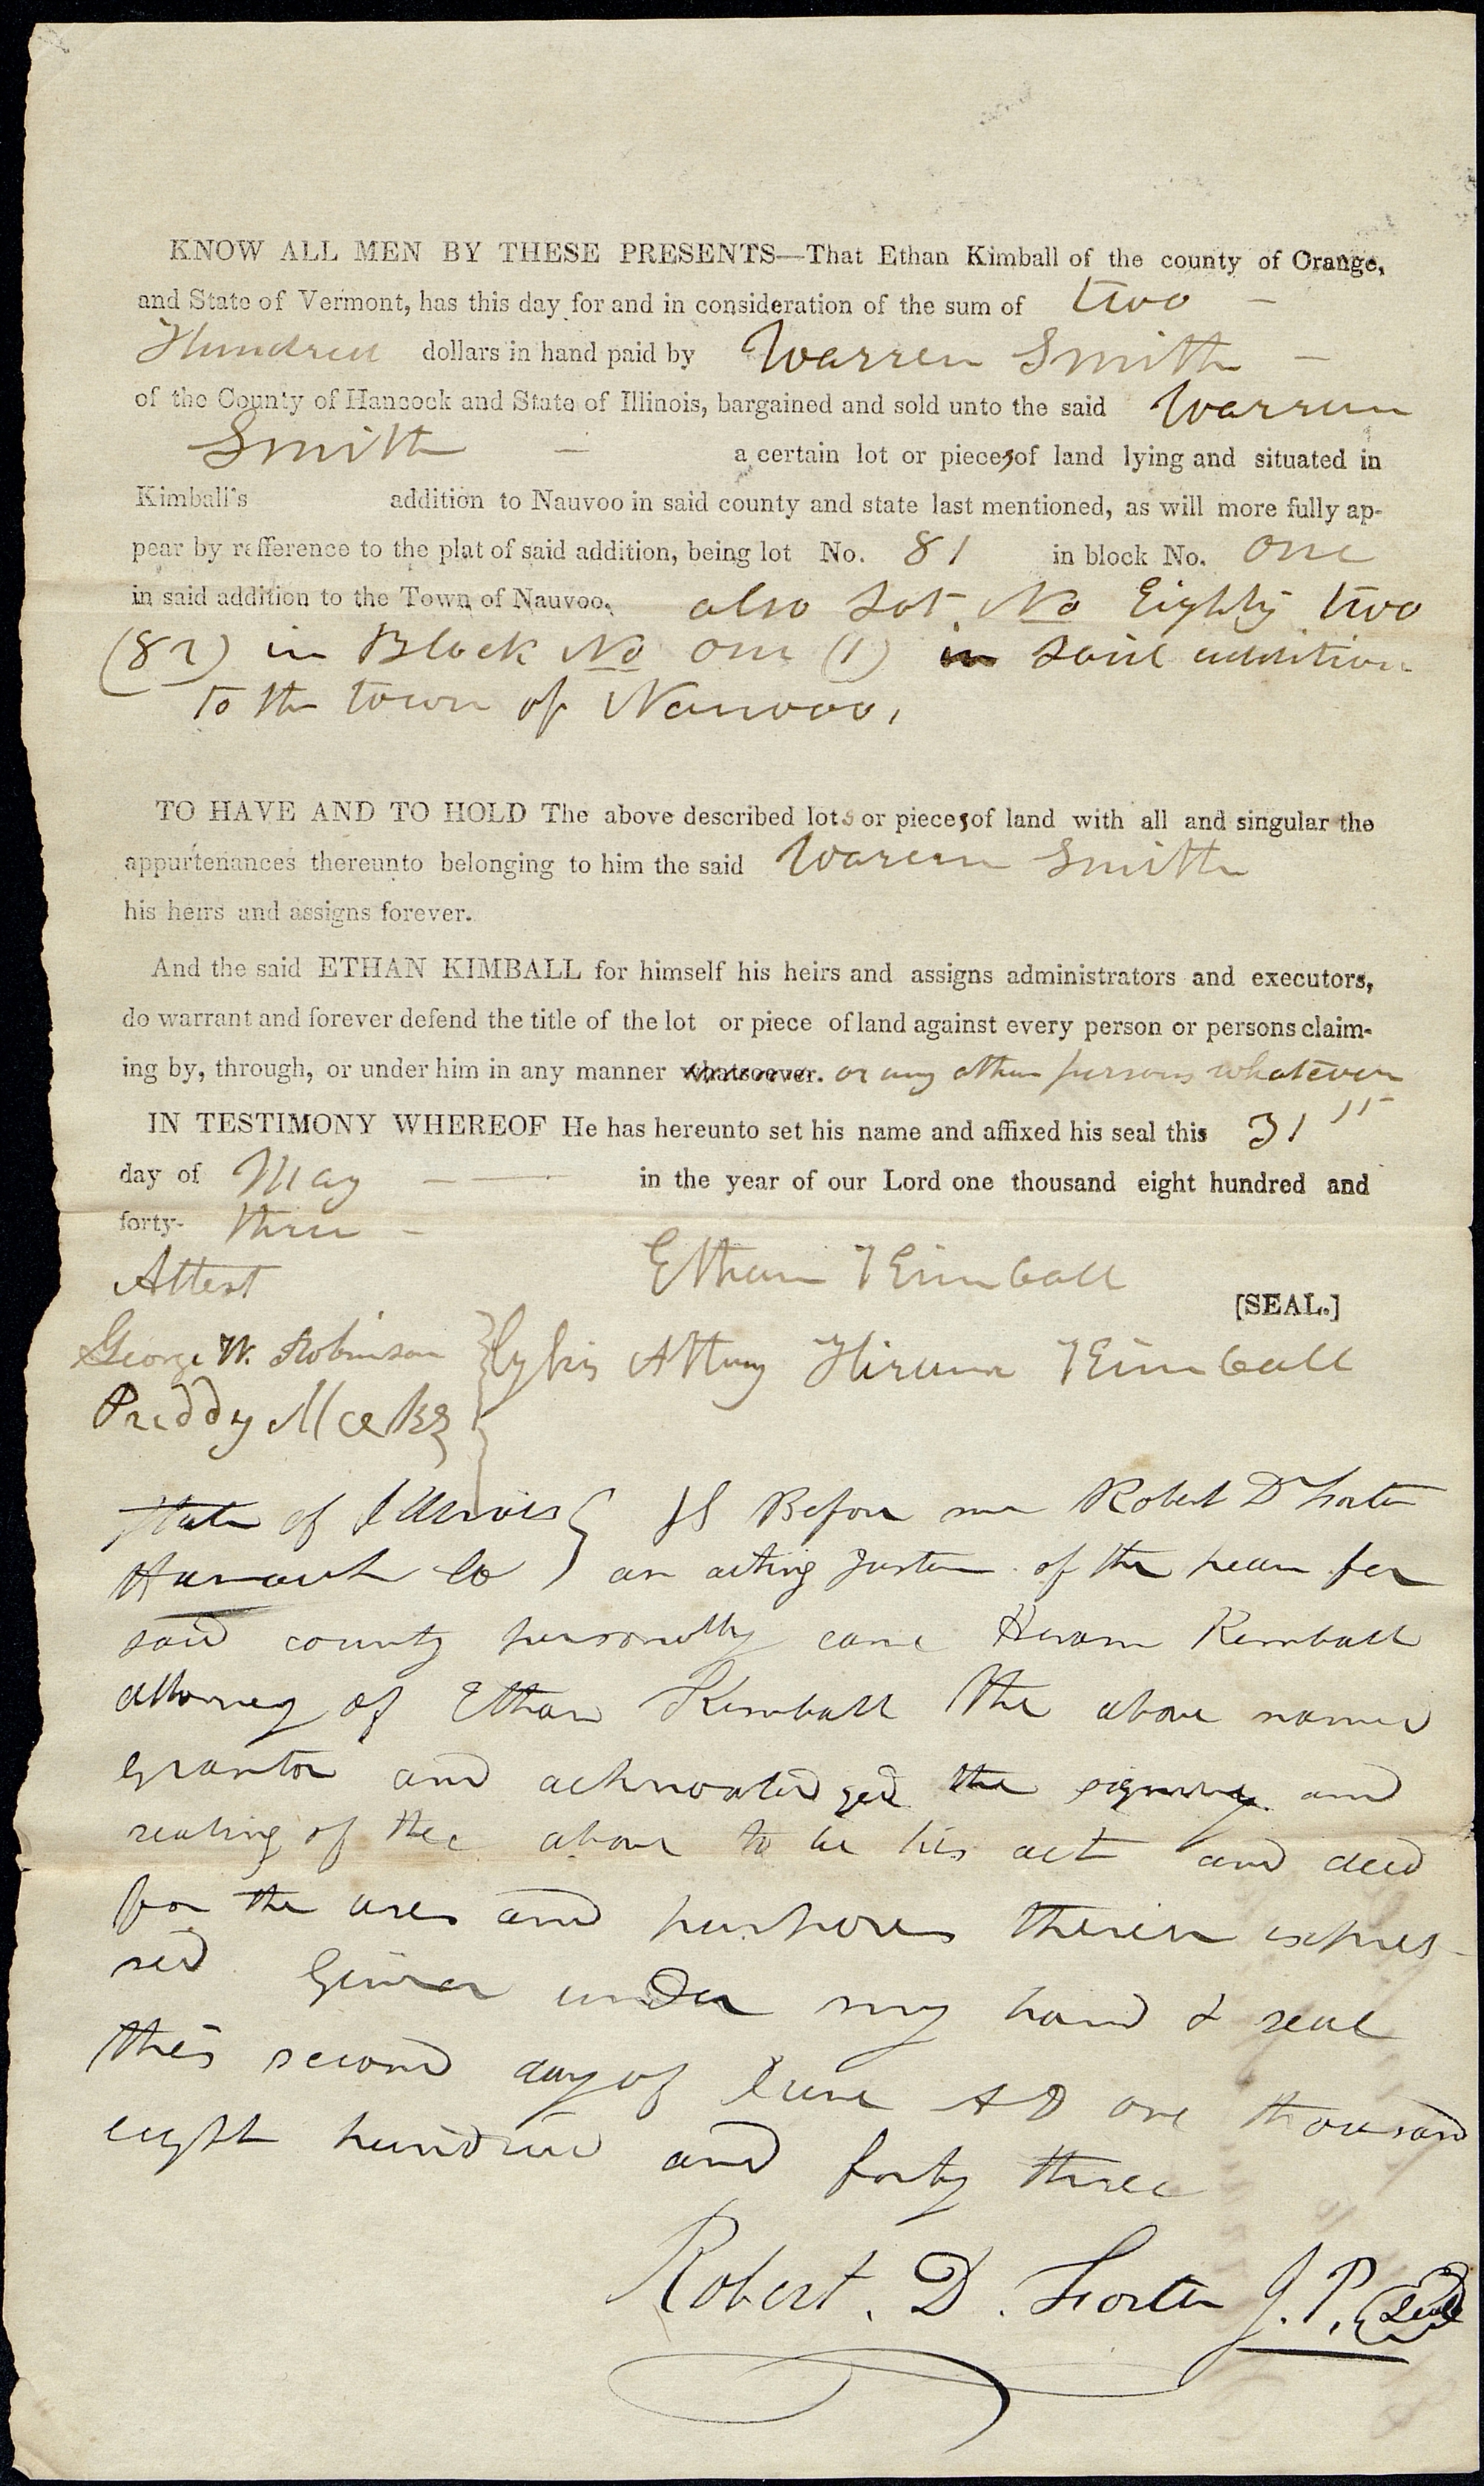 KNOW ALL MEN BY THESE PRESENTS—That Ethan Kimball of the county of Orange,
and State of Vermont, has this day for and in consideration of the sum of two –
Hundred dollars in hand paid by Warren Smith –
of the County of Hancock and State of Illinois, bargained and sold unto the said Warren
Smith – a certain lot or pieces of land lying and situated in
Kimball's addition to Nauvoo in said county and state last mentioned, as will more fully ap-
pear by refference to the plat of said addition, being lot No. 81 in block No. one
in said addition to the Town of Nauvoo. also Lot No Eighty two
(82) in Block No one (1) in said addition
to the town of Nauvoo,
TO HAVE AND TO HOLD The above described lots or pieces of land with all and singular the
appurtenances thereunto belonging to him the said Warren Smith
his heirs and assigns forever.
And the said ETHAN KIMBALL for himself his heirs and assigns administrators and executors,
do warrant and forever defend the title of the lot or piece of land against every person or persons claim-
ing by, through, or under him in any manner whatsoever. or any other persons whatever
IN TESTIMONY WHEREOF He has hereunto set his name and affixed his seal this 31"
day of May – — in the year of our Lord one thousand eight hundred and
forty- three –
Attest
Ethan Kimball
[SEAL.]
George W. Robinson } by his Attny Hiram Kimball
Preddy Meeks
State of Illinois } SS Before me Robert D Foster
Hancock Co } an acting Justice of the peace for
said county personally came Hiram Kimball
attorney of Ethan Kimball the above named
grantor and acknowledged the signing and
sealing of the above to be his act and deed
for the uses and purposes therein expres-
sed Given under my hand & seal
this second day of June AD one thousand
eight hundred and forty three
Robert. D. Foster J. P. Seal